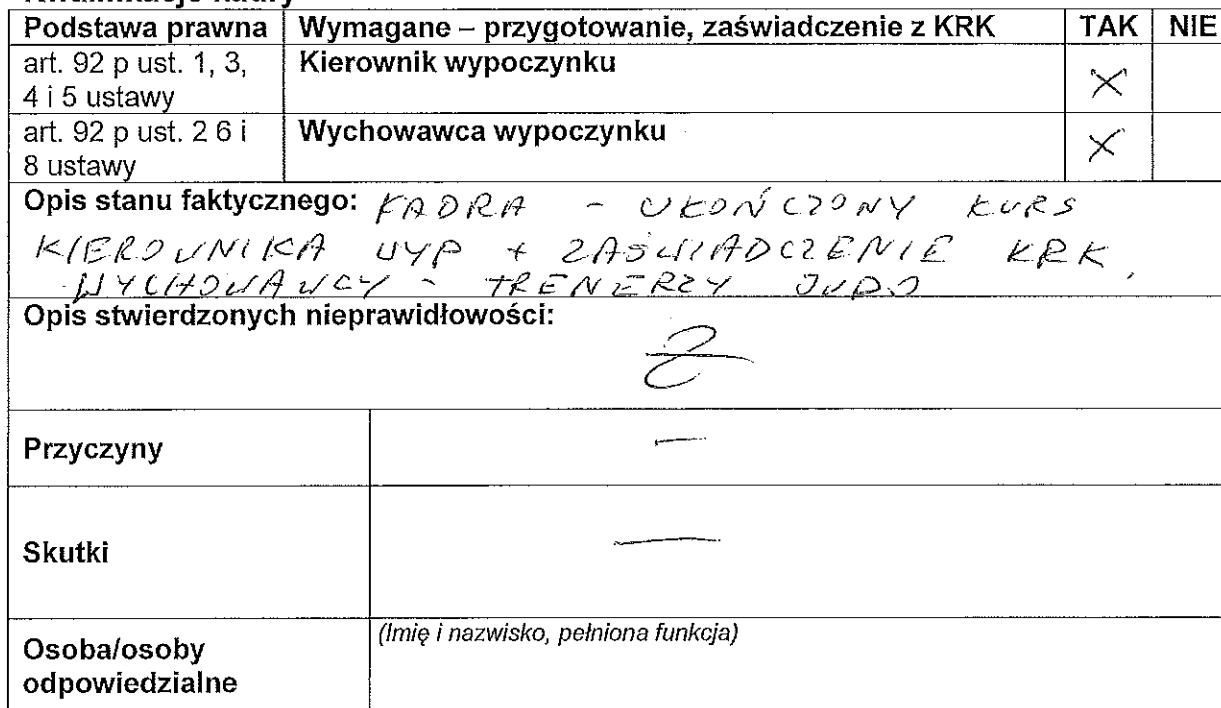 Podstawa prawna Wymagane – przygotowanie, zaświadczenie z KRK TAK NIE
art. 92 p ust. 1, 3, Kierownik wypoczynku
4 i 5 ustawy ×
art. 92 p ust. 2 6 i Wychowawca wypoczynku
8 ustawy ×
Opis stanu faktycznego: KADRA - UKOŃCZONY KURS
KIEROWNIKA WYP + ZAŚWIADCZENIE KRK,
WYCHOWAWCY - TRENERZY JUDO
Opis stwierdzonych nieprawidłowości:
Przyczyny —
Skutki —
Osoba/osoby (Imię i nazwisko, pełniona funkcja)
odpowiedzialne